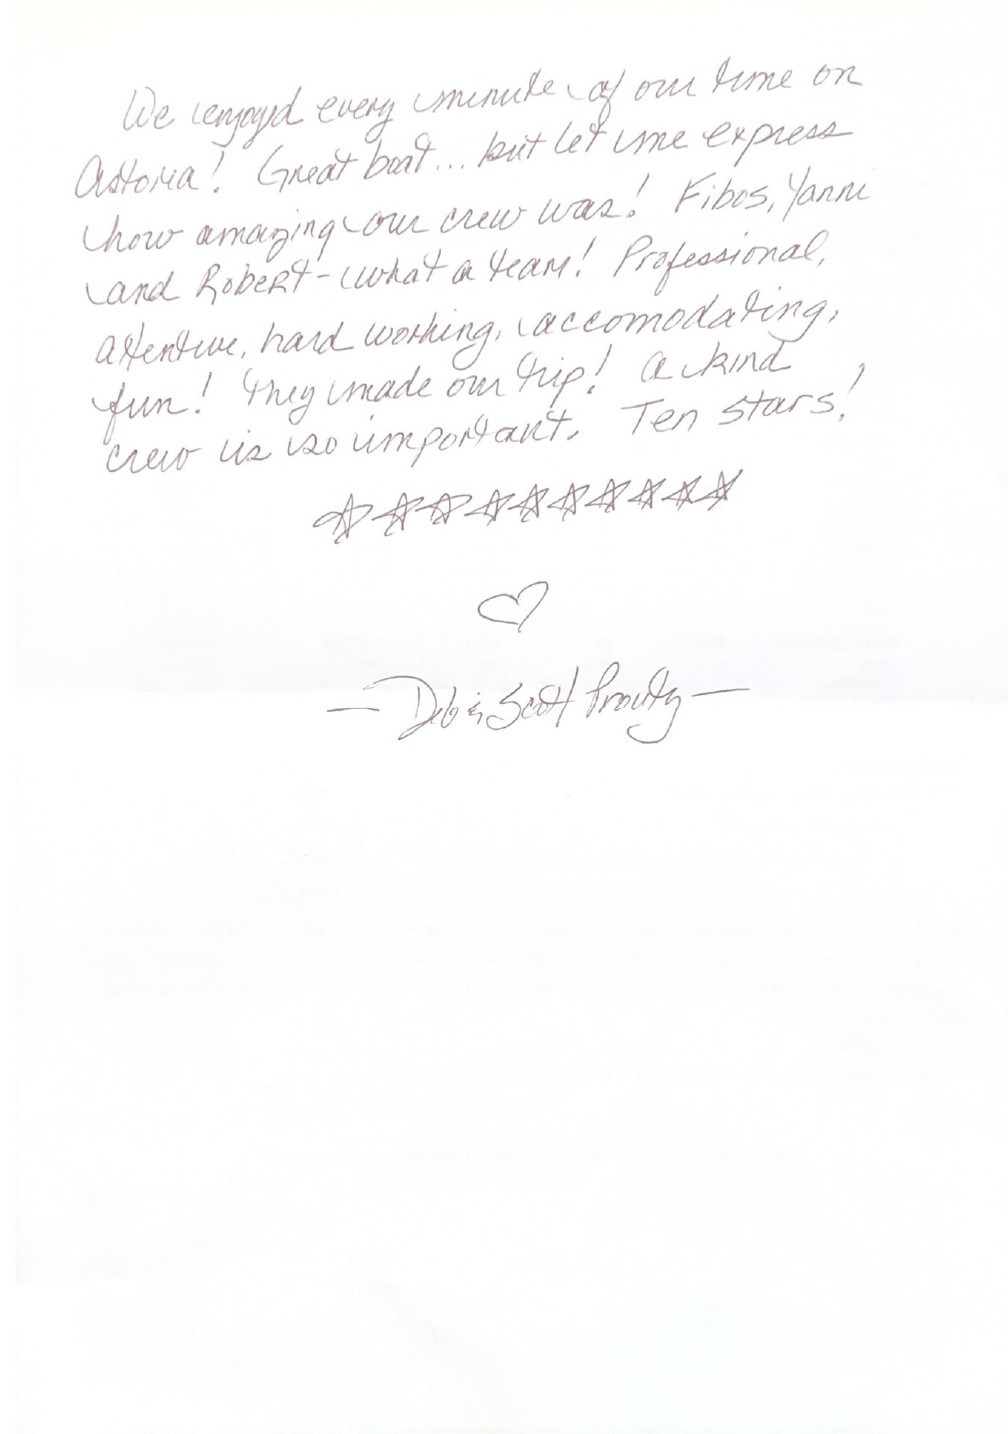 We enjoyd every minute of our time on
Astoria! Great boat... but let me express
how amazing our crew was! Fibos, Yanni
and Robert - what a team! Professional,
attentive, hard working, accomodating,
fun! They made our trip! A kind
crew is so important. Ten stars!
☆☆☆☆☆☆☆☆☆☆
♡
— Deb & Scott Prouty —